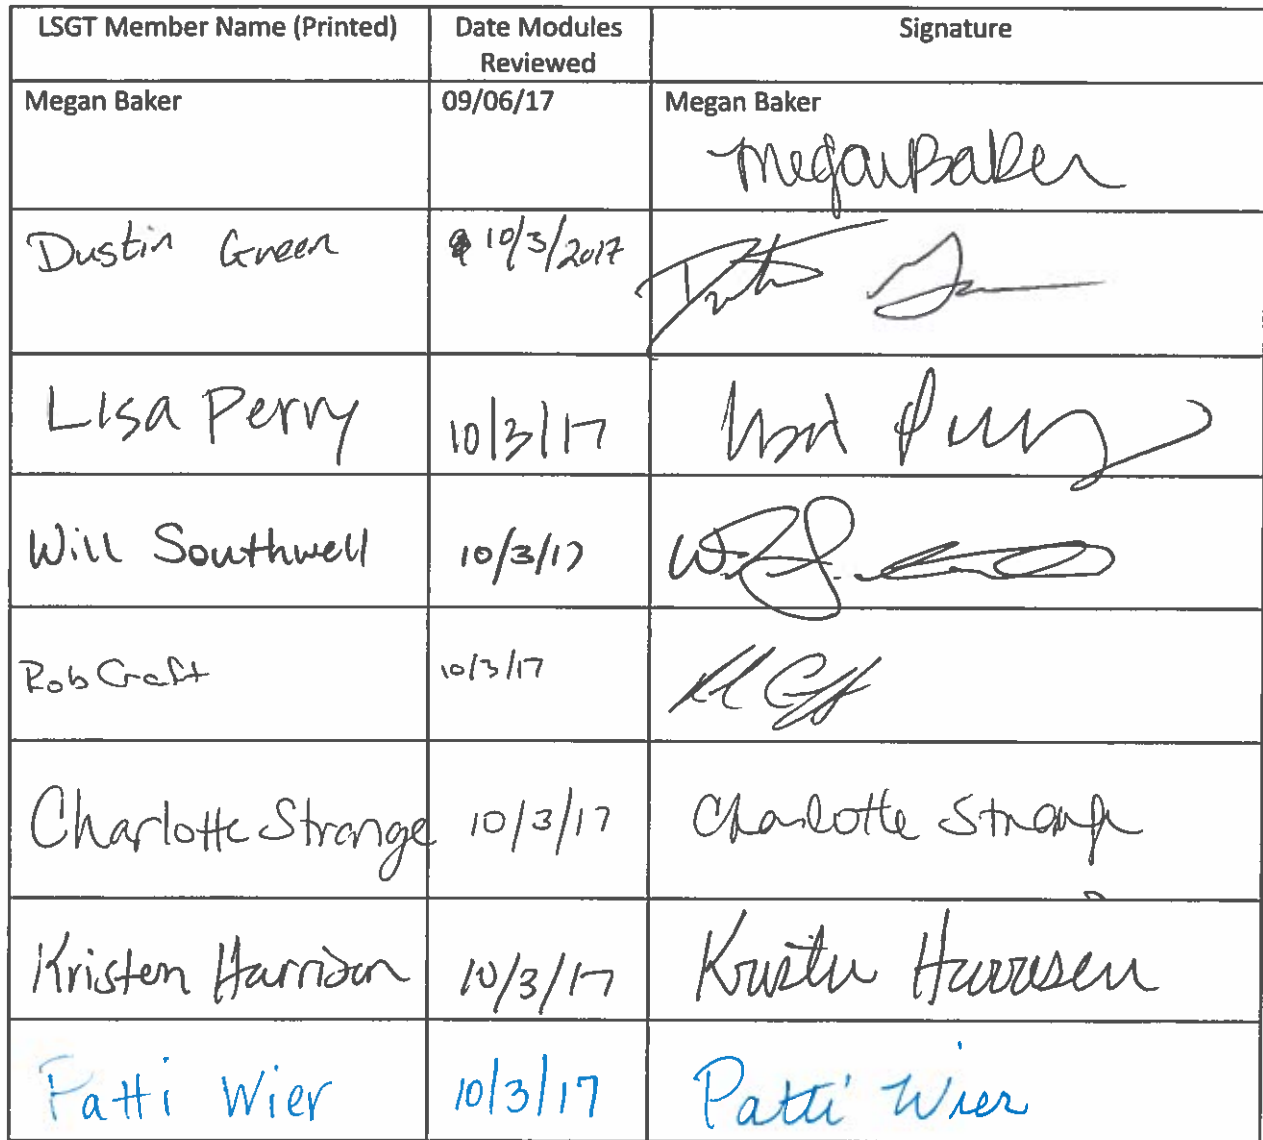 LSGT Member Name (Printed) Date Modules Reviewed Signature
Megan Baker 09/06/17 Megan Baker
Megan Baker
Dustin Green 10/3/2017
Lisa Perry 10/3/17 Lisa Perry
Will Southwell 10/3/17
Rob Craft 10/3/17
Charlotte Strange 10/3/17 Charlotte Strange
Kristen Harrison 10/3/17 Kristen Harrison
Patti Wier 10/3/17 Patti Wier